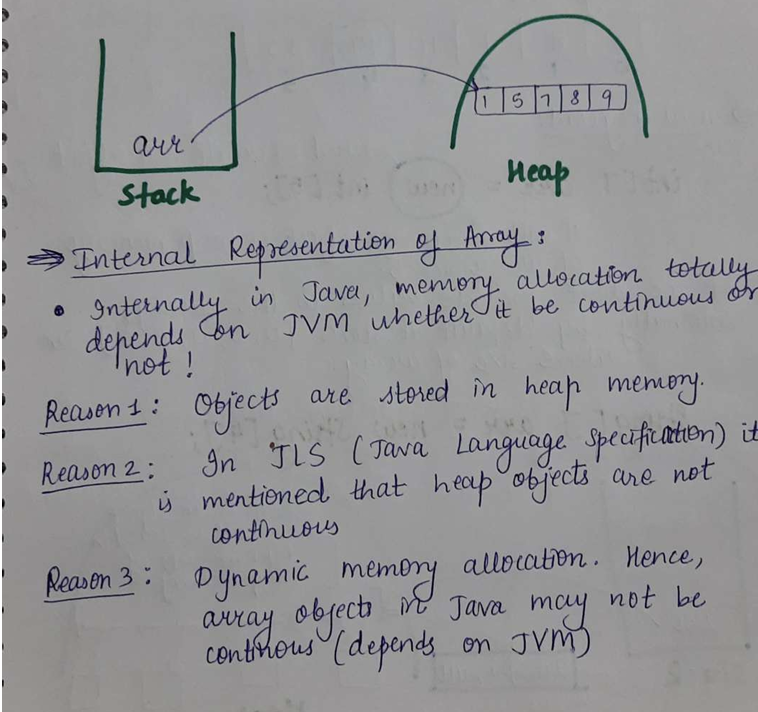 arr
Stack
1 5 7 8 9
Heap
⇒ Internal Representation of Array:
• Internally in Java, memory allocation totally
depends on JVM whether it be continuous or
not!
Reason 1: Objects are stored in heap memory.
Reason 2: In JLS (Java Language Specification) it
is mentioned that heap objects are not
continuous
Reason 3: Dynamic memory allocation. Hence,
array objects in Java may not be
continous (depends on JVM)